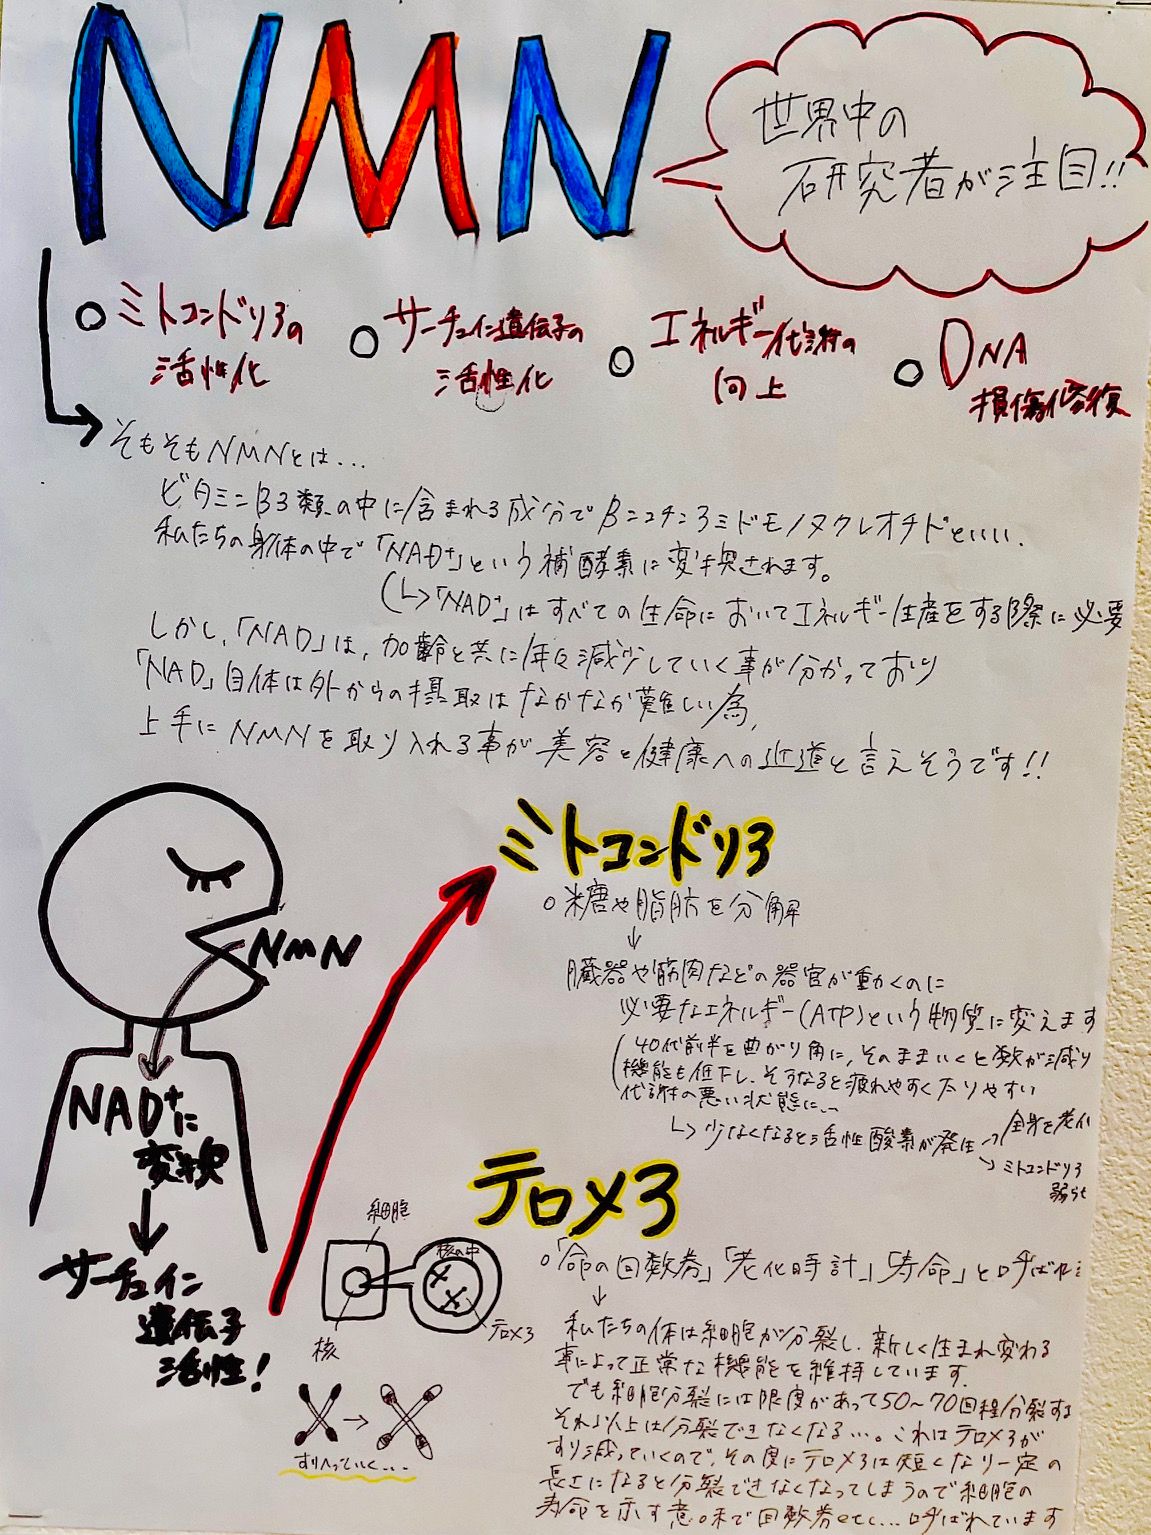 NMN
世界中の
研究者が注目!!
○ミトコンドリアの
活性化
○サーチュイン遺伝子の
活性化
○エネルギー代謝の
向上
○DNA
損傷修復
そもそもNMNとは…
ビタミンB3類の中に含まれる成分でβニコチンアミドモノヌクレオチドといい、
私たちの身体の中で「NAD+」という補酵素に変換されます。
(↳「NAD+」はすべての生命においてエネルギー生産をする際に必要
しかし、「NAD」は、加齢と共に年々減少していく事が分かっており
「NAD」自体は外からの摂取はなかなか難しい為、
上手にNMNを取り入れる事が美容と健康への近道と言えそうです!!
NMN
NAD+に
変換
↓
サーチュイン
遺伝子
活性!
ミトコンドリア
○糖や脂肪を分解
↓
臓器や筋肉などの器官が動くのに
必要なエネルギー(ATP)という物質に変えます
(40代前半を曲がり角に、そのままいくと数が減り
機能も低下し、そうなると疲れやすく太りやすい
代謝の悪い状態に…
↳少なくなると活性酸素が発生
→全身を老化
→ミトコンドリア
弱らせ
テロメア
細胞
核の中
テロメア
核
→
すりへっていく…
○「命の回数券」「老化時計」「寿命」と呼ばれ
↓
私たちの体は細胞が分裂し、新しく生まれ変わる
事によって正常な機能を維持しています。
でも細胞分裂には限度があって50〜70回程分裂する
それ以上は分裂できなくなる…。これはテロメアが
すり減っていくので、その度にテロメアは短くなり一定の
長さになると分裂できなくなってしまうので細胞の
寿命を示す意味で回数券etc…呼ばれています